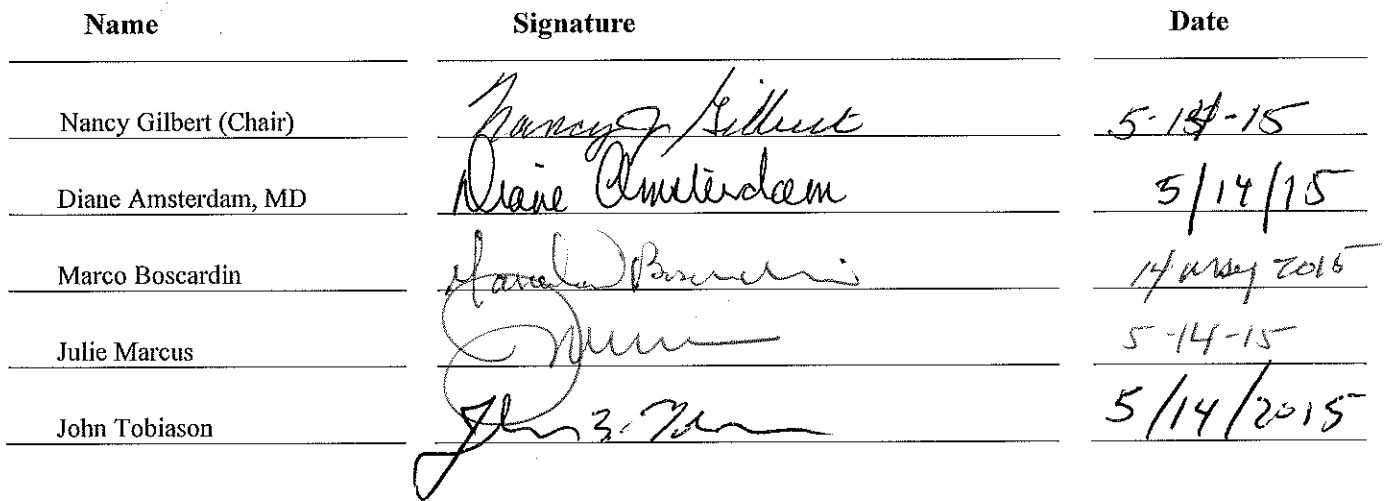 Name Signature Date
Nancy Gilbert (Chair) Nancy J Gilbert 5-14-15
Diane Amsterdam, MD Diane Amsterdam 5/14/15
Marco Boscardin Boscardin 14 May 2015
Julie Marcus 5-14-15
John Tobiason John 5/14/2015